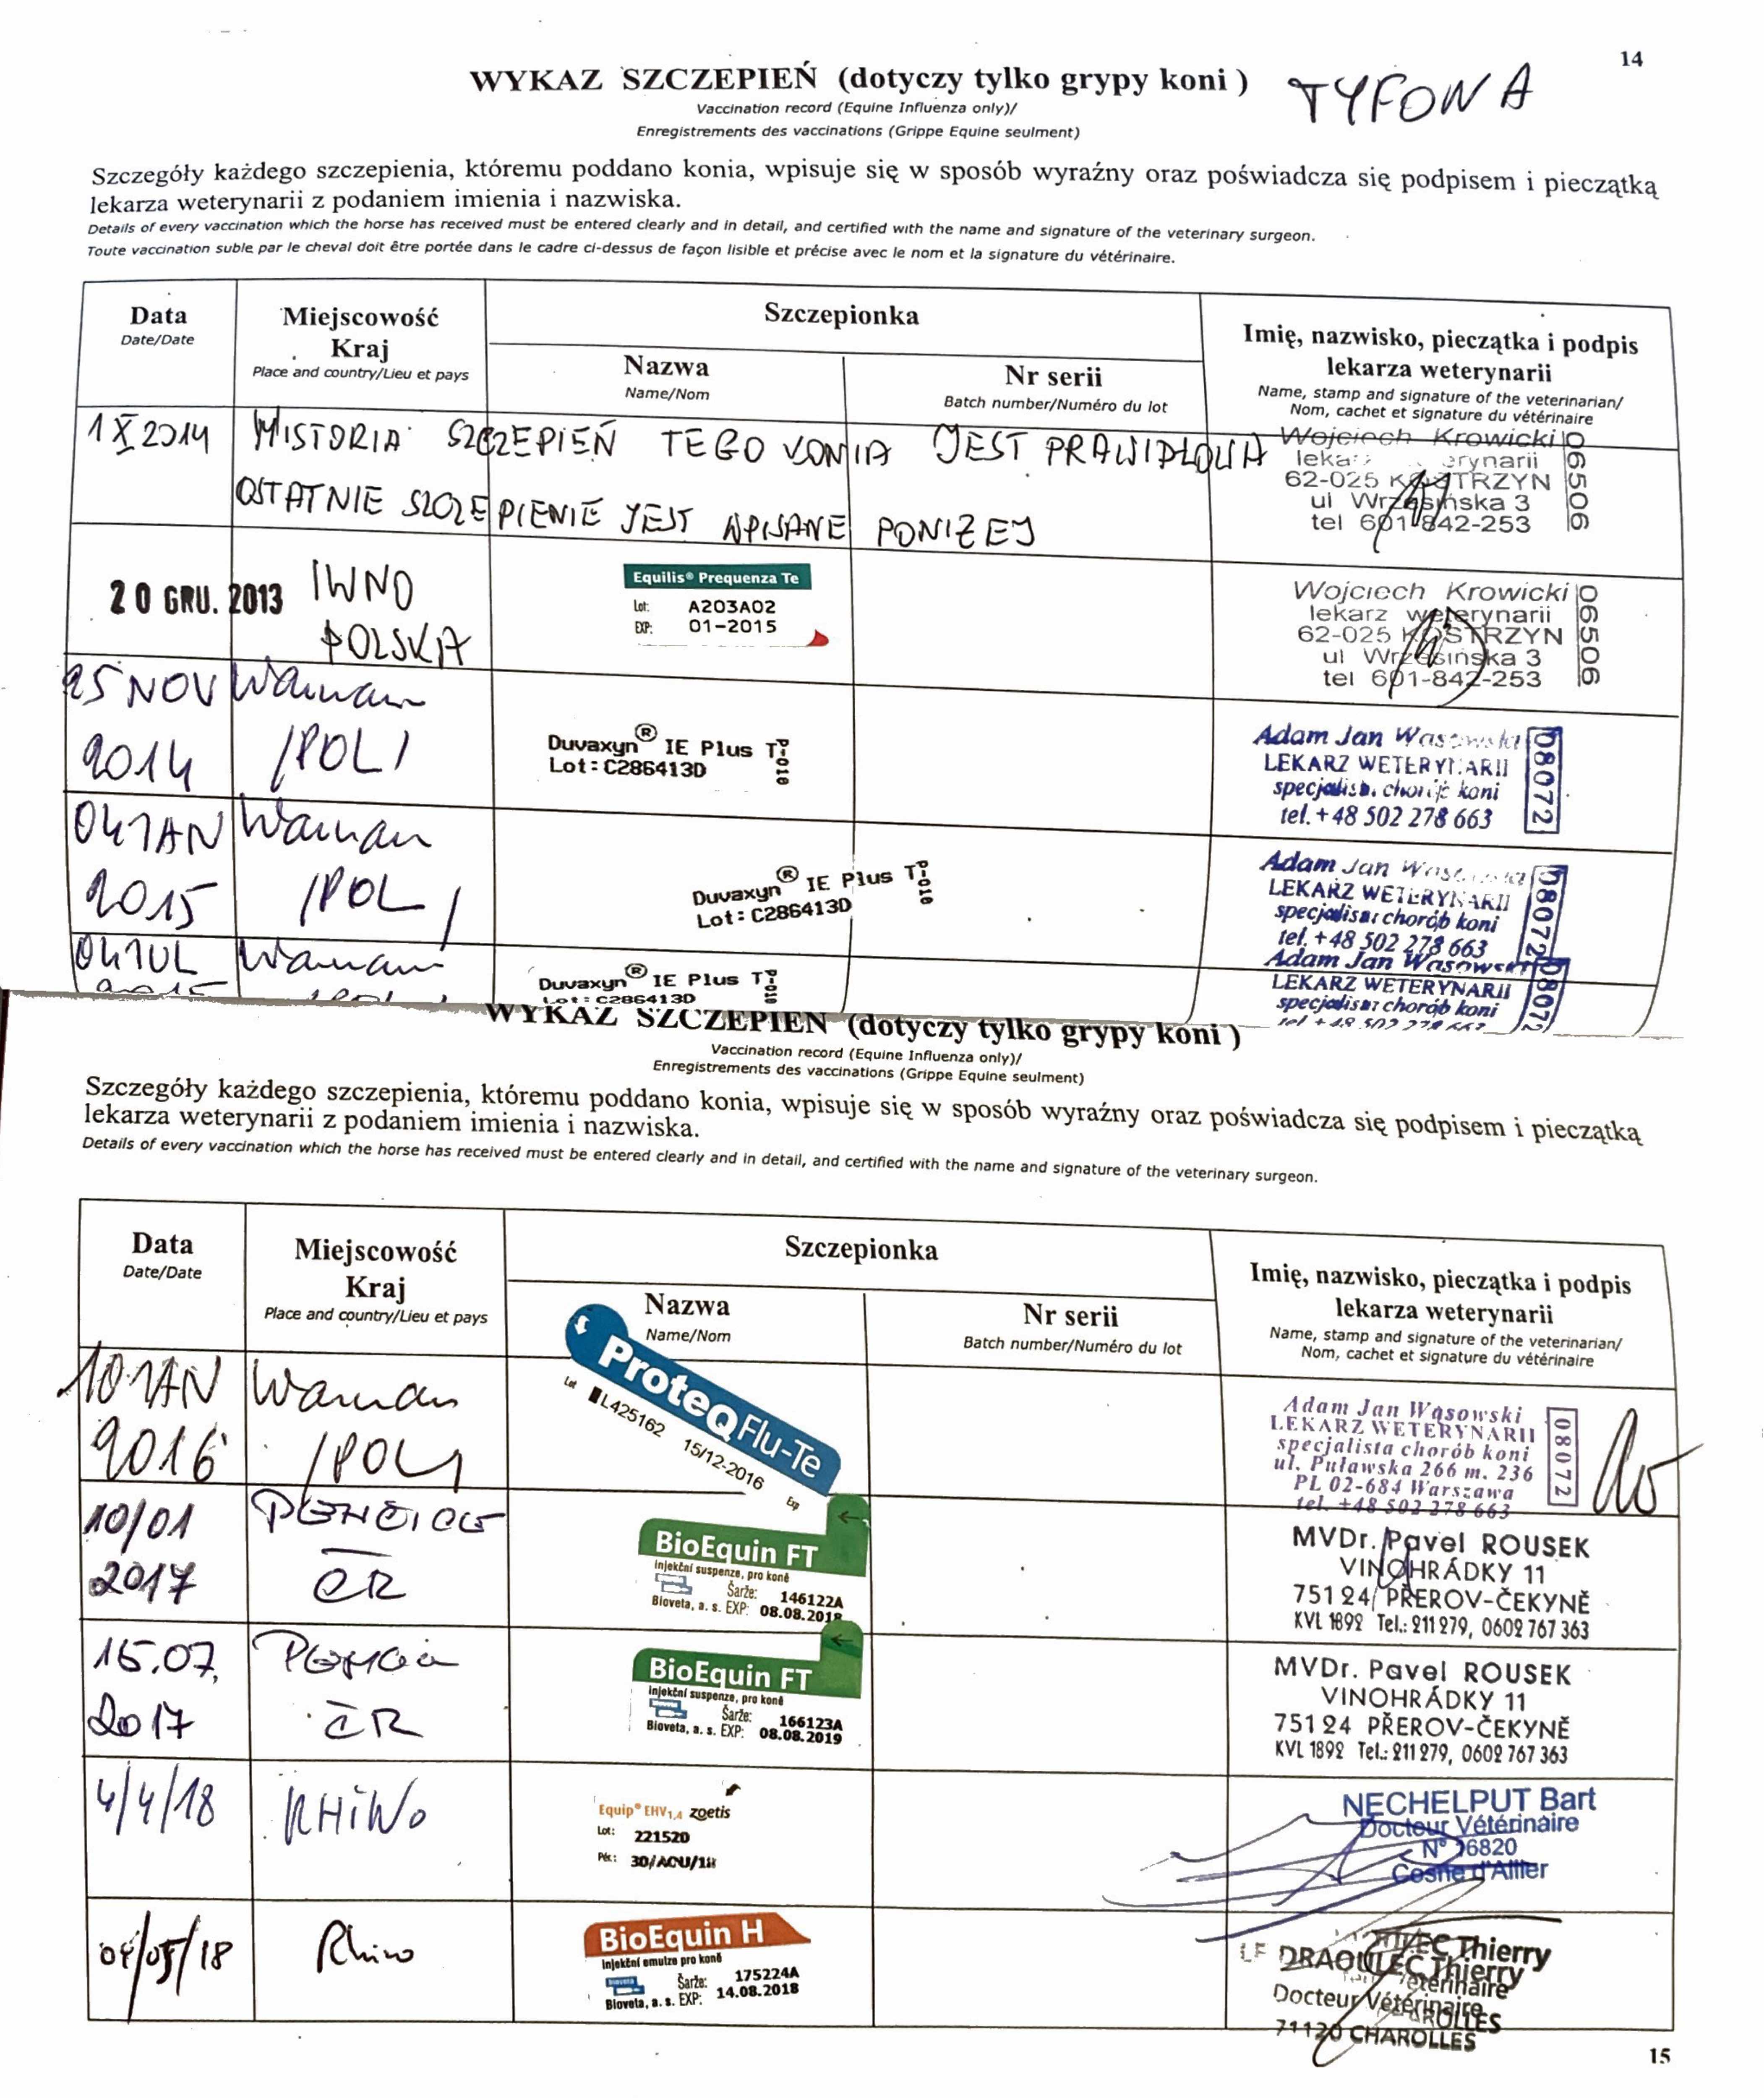 14
WYKAZ SZCZEPIEŃ (dotyczy tylko grypy koni )
TYFOWA
Vaccination record (Equine Influenza only)/
Enregistrements des vaccinations (Grippe Equine seulment)
Szczegóły każdego szczepienia, któremu poddano konia, wpisuje się w sposób wyraźny oraz poświadcza się podpisem i pieczątką
lekarza weterynarii z podaniem imienia i nazwiska.
Details of every vaccination which the horse has received must be entered clearly and in detail, and certified with the name and signature of the veterinary surgeon.
Toute vaccination suble par le cheval doit être portée dans le cadre ci-dessus de façon lisible et précise avec le nom et la signature du vétérinaire.
Data
Date/Date
Miejscowość
Kraj
Place and country/Lieu et pays
Szczepionka
Nazwa
Name/Nom
Nr serii
Batch number/Numéro du lot
Imię, nazwisko, pieczątka i podpis
lekarza weterynarii
Name, stamp and signature of the veterinarian/
Nom, cachet et signature du vétérinaire
1 X 2014 HISTORIA SZCZEPIEŃ TEGO KONIA JEST PRAWIDŁOWA
OSTATNIE SZCZEPIENIE JEST WPISANE PONIŻEJ
Wojciech Krowicki
62-025 KOSTRZYN
ul Wrzesińska 3
tel 601-842-253
06506
20 GRU. 2013
IWNO
POLSKA
Equilis® Prequenza Te
Lot: A203A02
EXP: 01-2015
Wojciech Krowicki
lekarz weterynarii
62-025 KOSTRZYN
ul Wrzesińska 3
tel 601-842-253
06506
25 NOV
2014
/POL/
Duvaxyn® IE Plus T
Lot: C286413D
P-010
Adam Jan Wąsowski
LEKARZ WETERYNARII
specjalista chorób koni
tel. +48 502 278 663
08072
04 JAN
2015
/POL/
Duvaxyn® IE Plus T
Lot: C286413D
P-010
Adam Jan Wąsowski
LEKARZ WETERYNARII
specjalista chorób koni
tel. +48 502 278 663
08072
04 JUL
Duvaxyn® IE Plus T
Lot: C286413D
P-010
Adam Jan Wąsowski
LEKARZ WETERYNARII
specjalista chorób koni
tel +48 502 278 663
0807
WYKAZ SZCZEPIEŃ (dotyczy tylko grypy koni )
Vaccination record (Equine Influenza only)/
Enregistrements des vaccinations (Grippe Equine seulment)
Szczegóły każdego szczepienia, któremu poddano konia, wpisuje się w sposób wyraźny oraz poświadcza się podpisem i pieczątką
lekarza weterynarii z podaniem imienia i nazwiska.
Details of every vaccination which the horse has received must be entered clearly and in detail, and certified with the name and signature of the veterinary surgeon.
Data
Date/Date
Miejscowość
Kraj
Place and country/Lieu et pays
Szczepionka
Nazwa
Name/Nom
Nr serii
Batch number/Numéro du lot
Imię, nazwisko, pieczątka i podpis
lekarza weterynarii
Name, stamp and signature of the veterinarian/
Nom, cachet et signature du vétérinaire
10 JAN
2016
/POL/
ProteqFlu-Te
Lot L425162 15/12-2016 Exp
Adam Jan Wąsowski
LEKARZ WETERYNARII
specjalista chorób koni
ul. Puławska 266 m. 236
PL 02-684 Warszawa
tel. +48 502 278 663
08072
10/01
2017
ČR
BioEquin FT
injekční suspenze, pro koně
Šarže: 146122A
Bioveta, a. s. EXP: 08.08.2018
MVDr. Pavel ROUSEK
VINOHRÁDKY 11
751 24 PŘEROV-ČEKYNĚ
KVL 1892 Tel.: 211 279, 0602 767 363
15.07.
2017
ČR
BioEquin FT
injekční suspenze, pro koně
Šarže: 166123A
Bioveta, a. s. EXP: 08.08.2019
MVDr. Pavel ROUSEK
VINOHRÁDKY 11
751 24 PŘEROV-ČEKYNĚ
KVL 1892 Tel.: 211 279, 0602 767 363
4/4/18
RHiNo
Equip® EHV1,4 zoetis
Lot: 221520
Pér.: 30/AOU/18
NECHELPUT Bart
Docteur Vétérinaire
N° 16820
Cosne d'Allier
04/05/18
Rhino
BioEquin H
Injekční emulze pro koně
Šarže: 175224A
Bioveta, a. s. EXP: 14.08.2018
LE DRAOULEC Thierry
Docteur Vétérinaire
71120 CHAROLLES
15